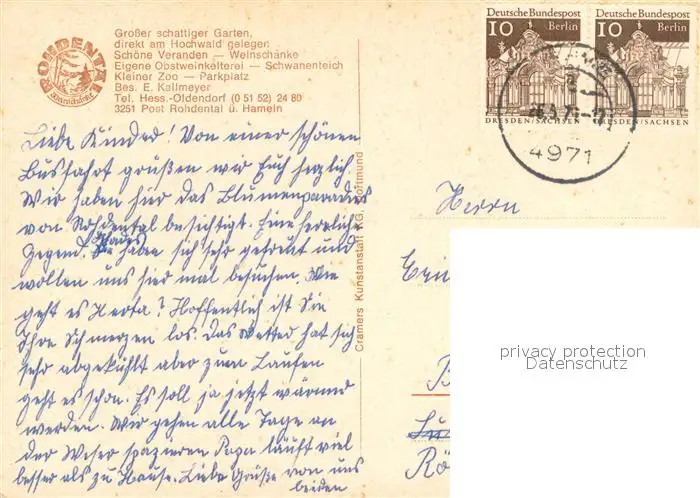 ROHDENTAL
Großer schattiger Garten,
direkt am Hochwald gelegen
Schöne Veranden — Weinschänke
Eigene Obstweinkelterei — Schwanenteich
Kleiner Zoo — Parkplatz
Bes. E. Kallmeyer
Tel. Hess.-Oldendorf (0 51 52) 24 80
3251 Post Rohdental ü. Hameln
Liebe Kinder! Von einer schönen
Busfahrt grüßen wir Euch herzlich.
Wir haben hier das Blumenparadies
von Rohdental besichtigt. Eine herrliche
Gegend. haben sich sehr gefreut und
wollen uns hier mal besuchen. Wie
geht es Herta? Hoffentlich ist Sie
Ihre Schmerzen los. Das Wetter hat sich
sehr abgekühlt aber zum Laufen
geht es schon. Es soll ja jetzt wärmer
werden. Wir gehen alle Tage an
der Weser spazieren Papa läuft viel
besser als zu Hause. Liebe Grüße von uns
beiden
Cramers Kunstanstalt KG, Dortmund
Deutsche Bundespost
10 Berlin
DRESDEN/SACHSEN
Deutsche Bundespost
10 Berlin
DRESDEN/SACHSEN
4971
Herrn
privacy protection
Datenschutz